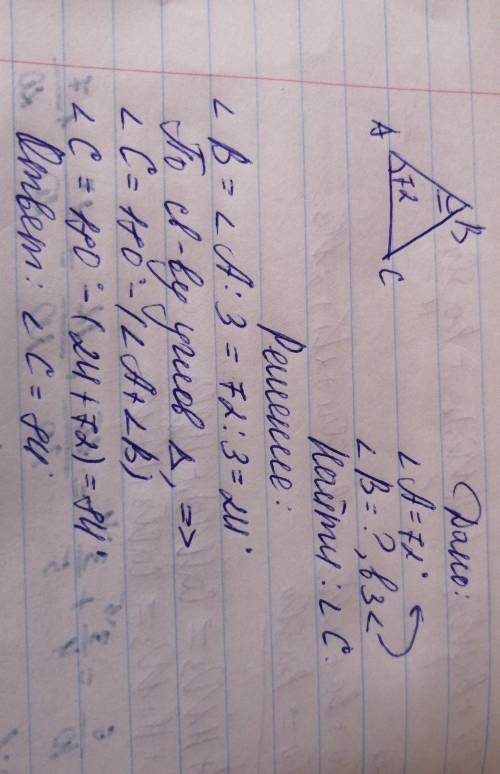 Дано:
∠A = 72°
∠B = ?, в 3 <
Найти: ∠C.
B
A
72
C
Решение:
∠B = ∠A : 3 = 72 : 3 = 24°
По св-ву углов Δ, =>
∠C = 180° - (∠A + ∠B)
∠C = 180° - (24 + 72) = 84°
Ответ: ∠C = 84°